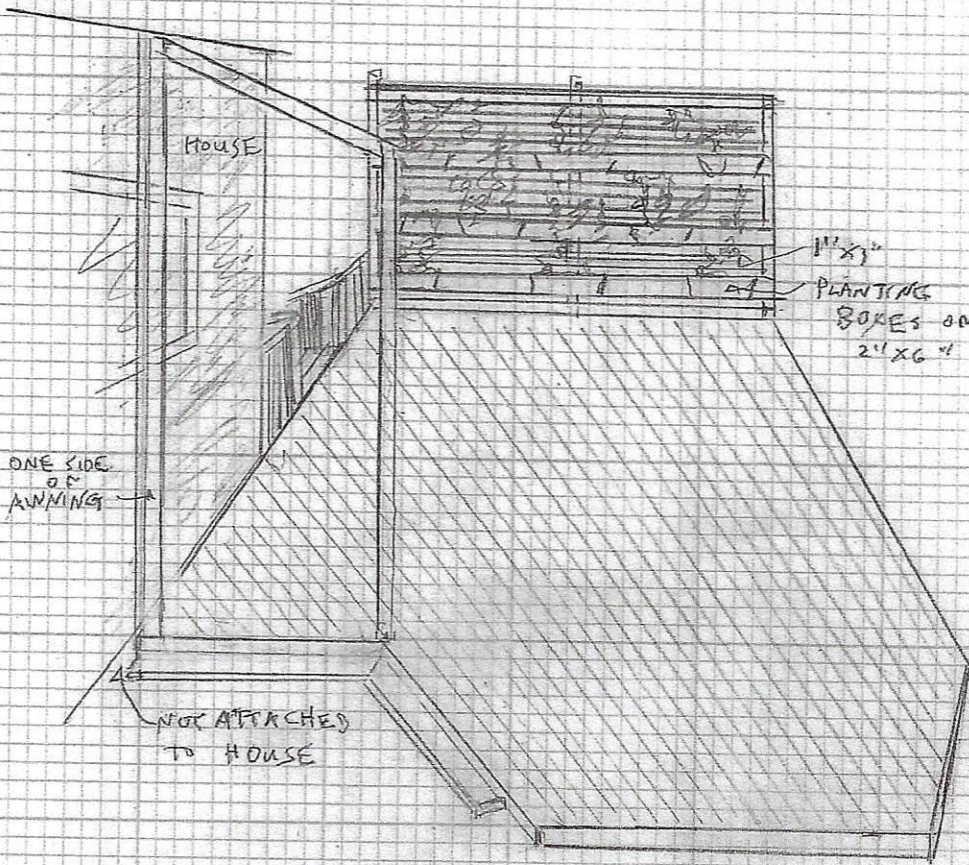 HOUSE
1"X3"
PLANTING
BOXES OR
2"X6"
ONE SIDE
OF
AWNING
NOT ATTACHED
TO HOUSE